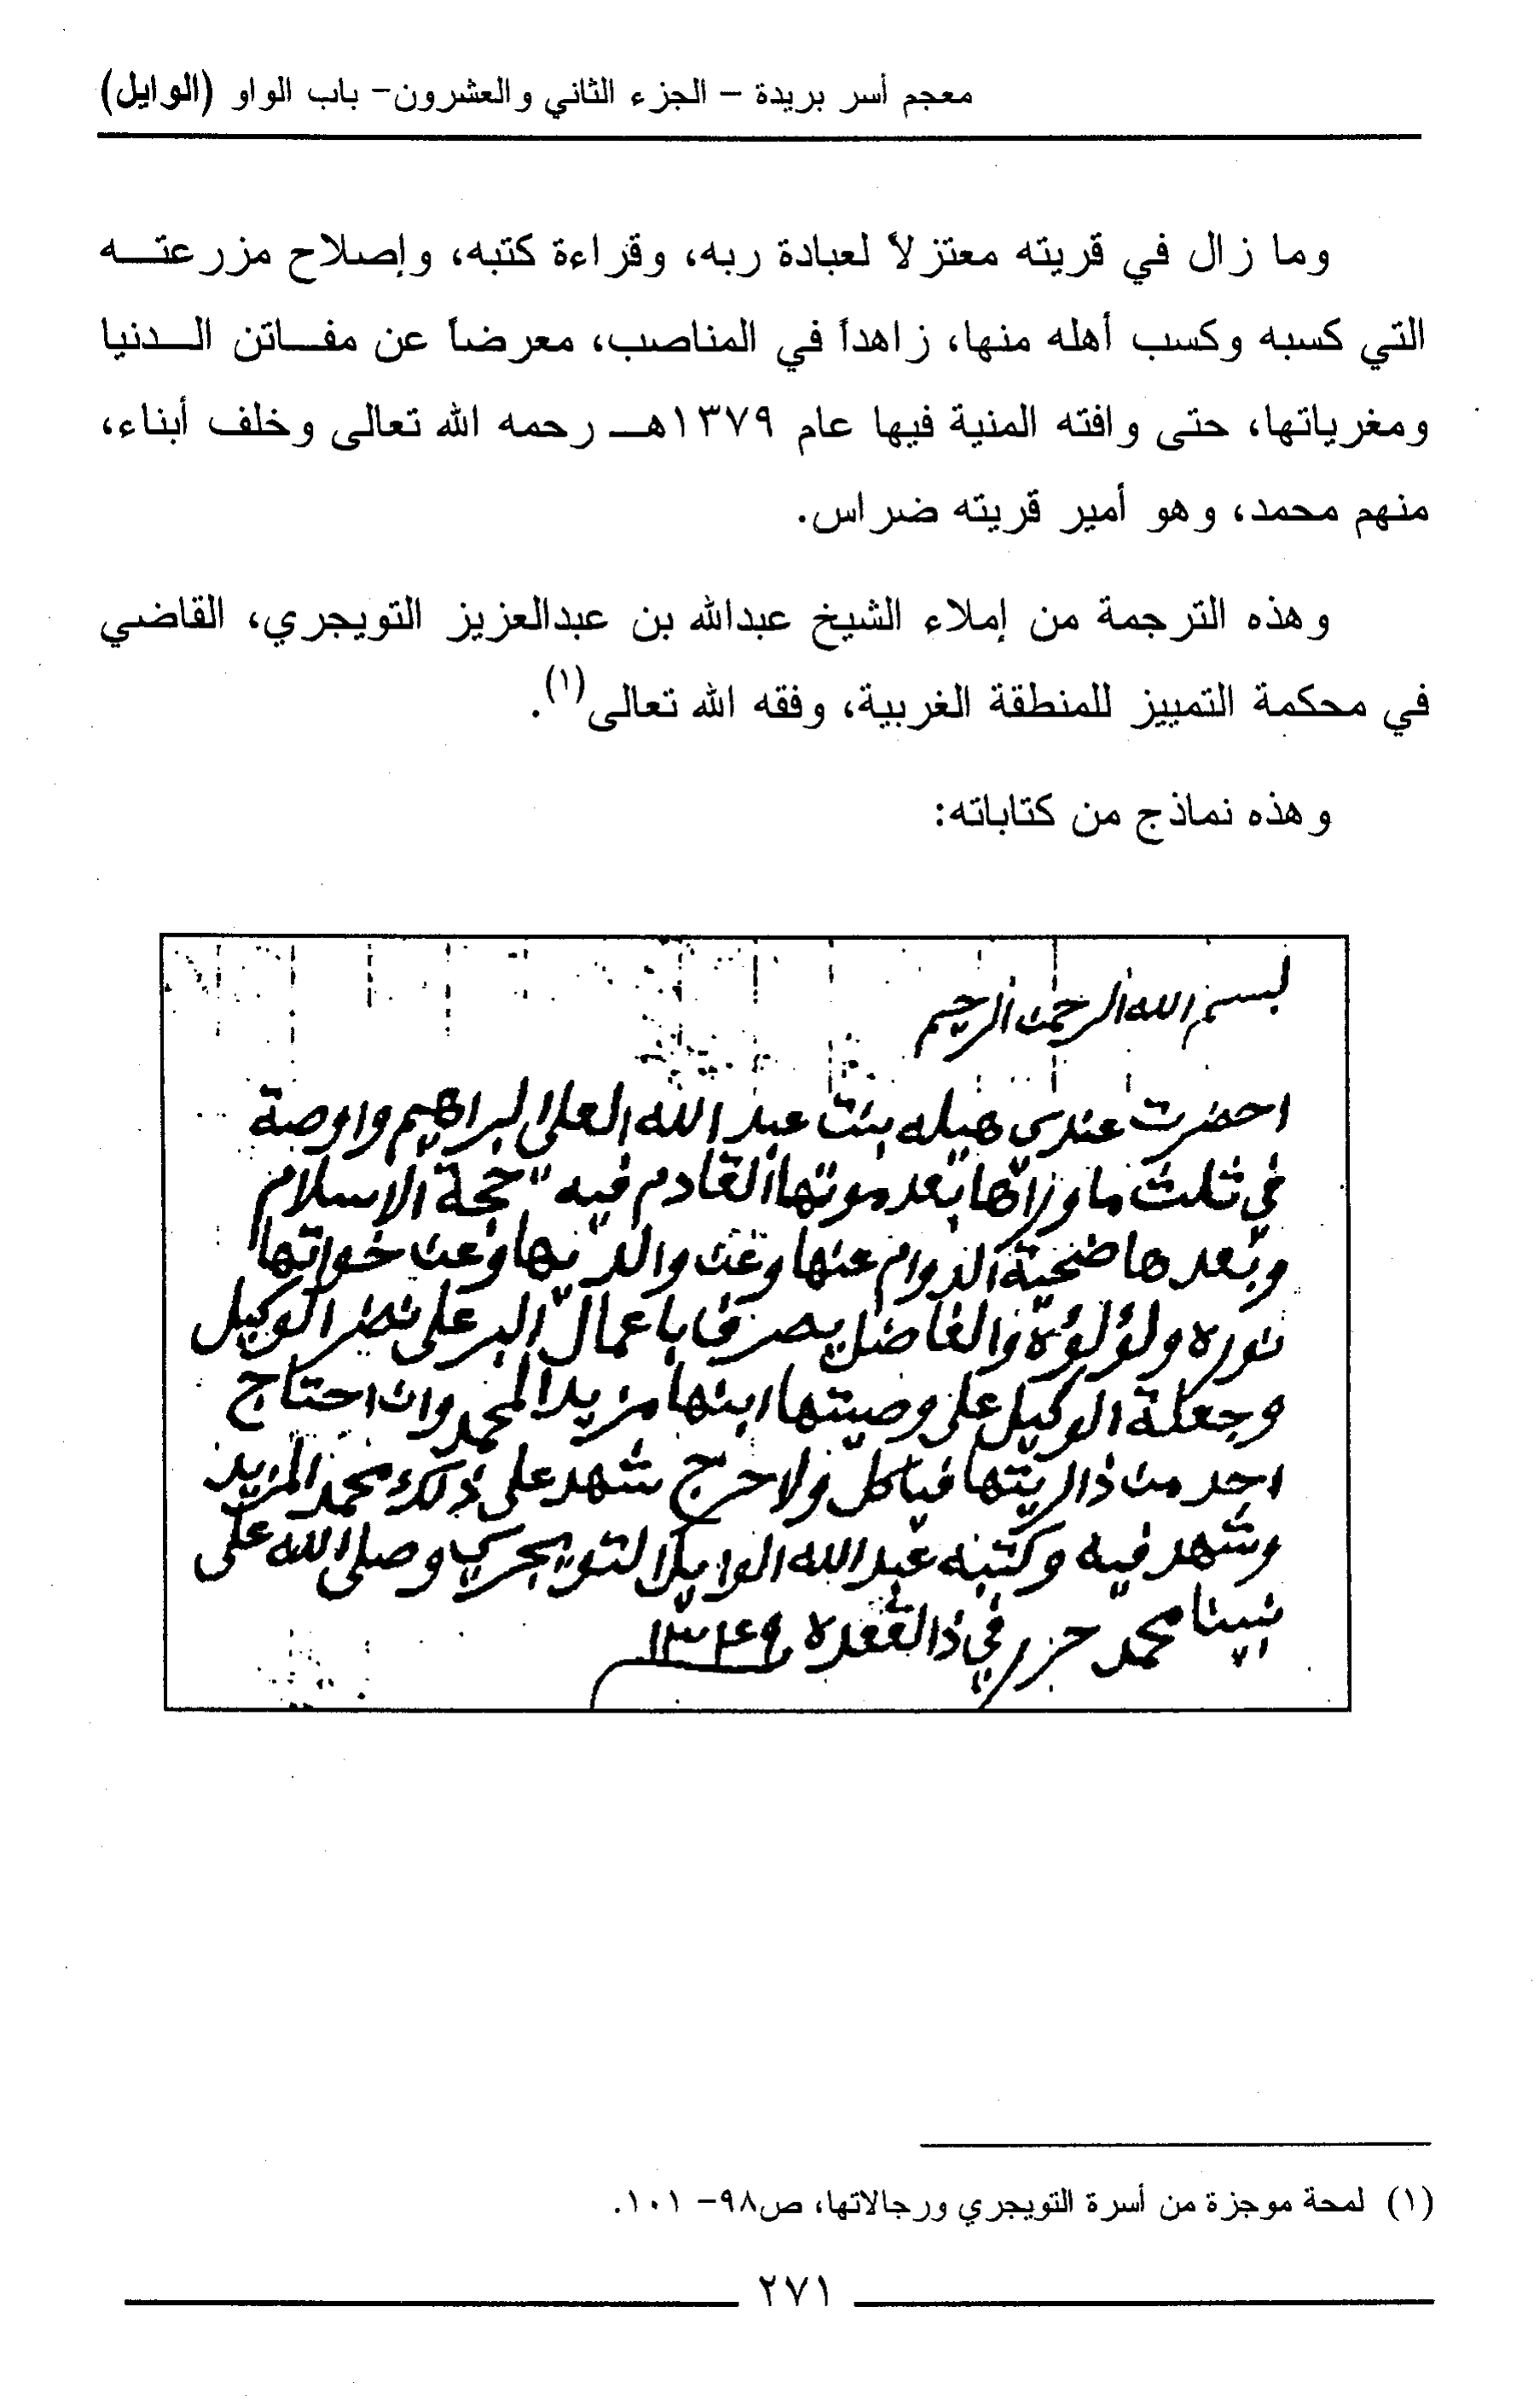 معجم أسر بريدة – الجزء الثاني والعشرون– باب الواو (الوايل)
وما زال في قريته معتزلاً لعبادة ربه، وقراءة كتبه، وإصلاح مزرعتـــه
التي كسبه وكسب أهله منها، زاهداً في المناصب، معرضاً عن مفـــاتن الـــدنيا
ومغرياتها، حتى وافته المنية فيها عام ١٣٧٩هـــ رحمه الله تعالى وخلف أبناء،
منهم محمد، وهو أمير قريته ضراس.
وهذه الترجمة من إملاء الشيخ عبدالله بن عبدالعزيز التويجري، القاضي
في محكمة التمييز للمنطقة الغربية، وفقه الله تعالى(١).
وهذه نماذج من كتاباته:
بسم الله الرحمن الرحيم
احضرت عندي هيله بنت عبد الله العلي البراهيم واوصة
في ثلث ما وراها بعد موتها القادم فيه حجة الاسلام
وبعدها ضحية الدوام عنها وعن والديها وعن خواتها
نوره ولؤلؤة والفاضل يصرف باعمال البر على نضر الوكيل
وجعلة الوكيل على وصيتها ابنها مزيد المحمد وان احتاج
احد من ذاريتها فياكل ولا حرج شهد على ذلك محمد المزيد
وشهد فيه وكتبه عبد الله الوايل التويجري وصلى الله على
نبينا محمد حرر في ذالقعده ١٣٤٩
(١) لمحة موجزة من أسرة التويجري ورجالاتها، ص٩٨– ١٠١.
٢٧١